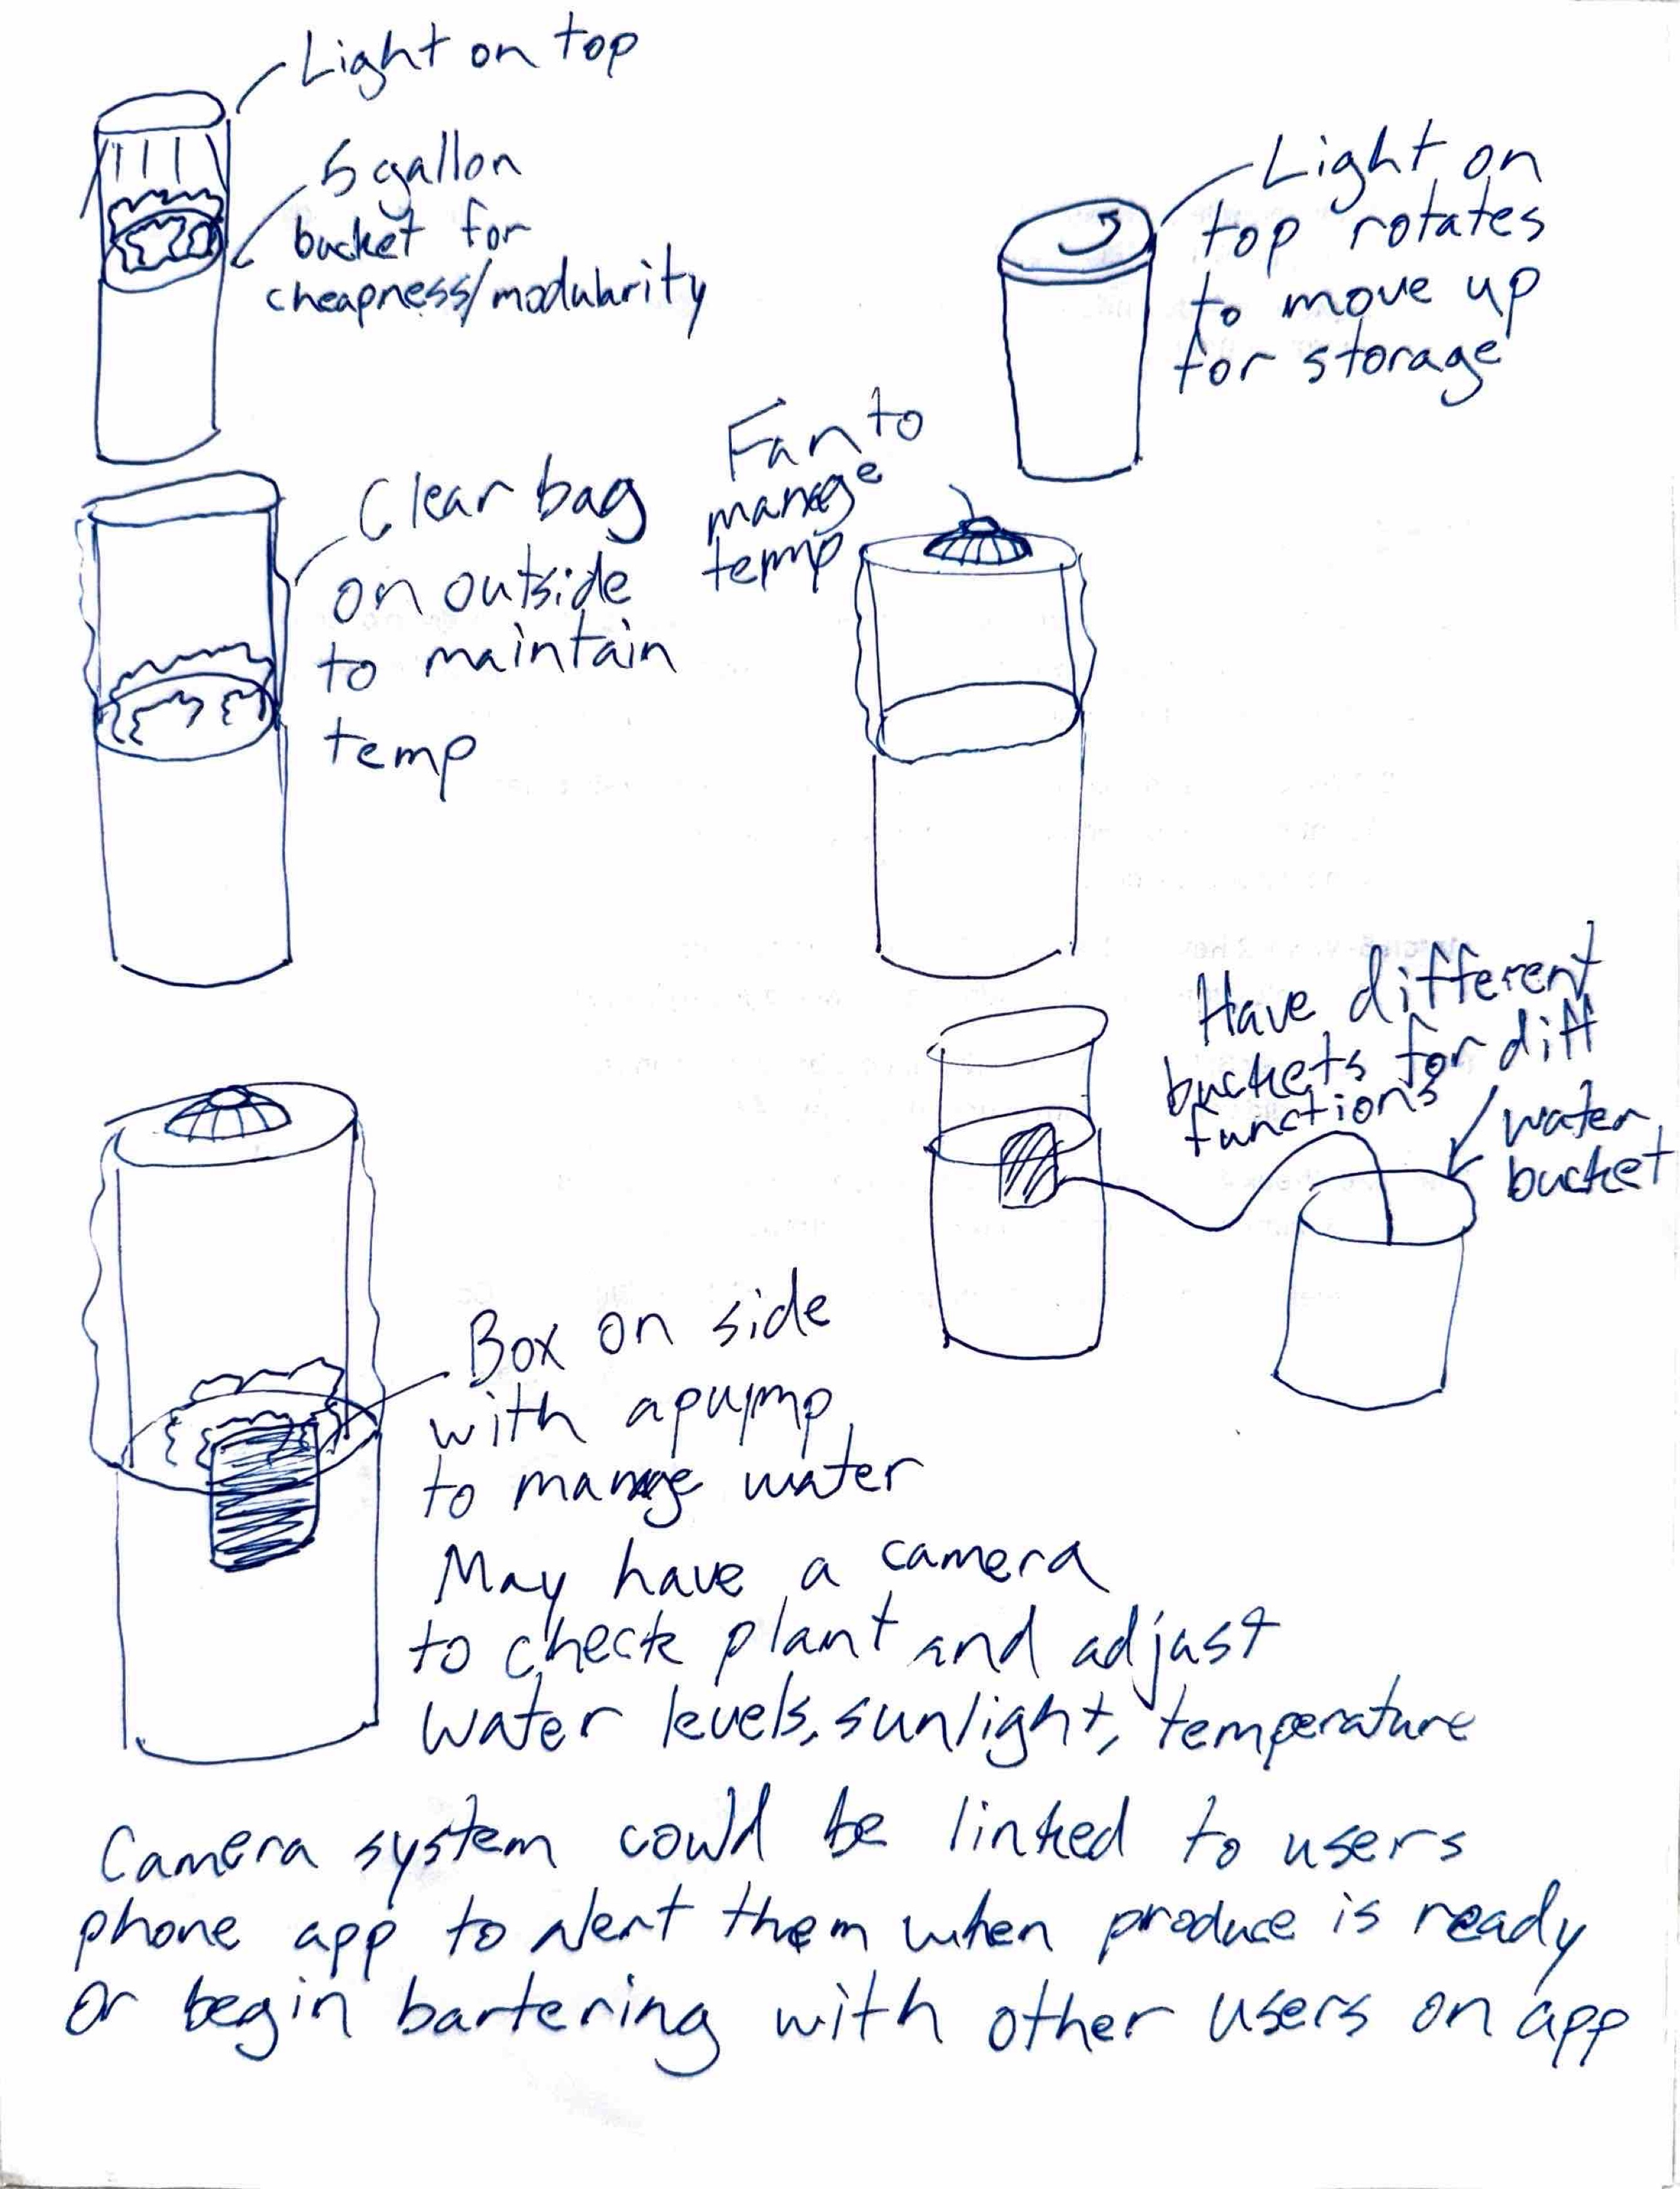 Light on top
5 gallon
bucket for
cheapness/modularity
Light on
top rotates
to move up
for storage
Clear bag
on outside
to maintain
temp
Fan to
manage
temp
Have different
buckets for diff
functions
water
bucket
Box on side
with a pump
to manage water
May have a camera
to check plant and adjust
water levels, sunlight, temperature
Camera system could be linked to users
phone app to alert them when produce is ready
or begin bartering with other users on app